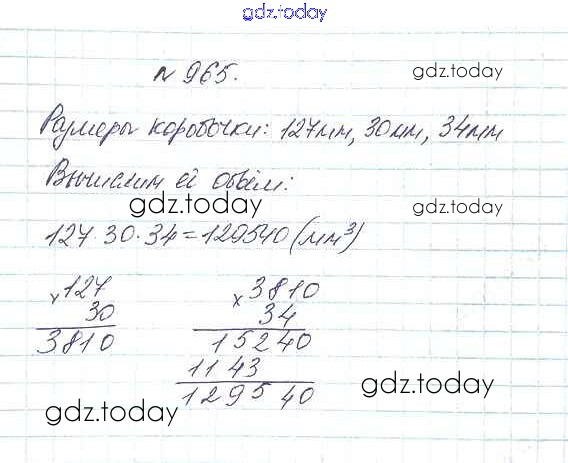 gdz.today
№ 965.
gdz.today
Размеры коробочки: 127мм, 30мм, 34мм
Вычислим её объём:
gdz.today
gdz.today
127·30·34=129540(мм³)
×127
30
3810
×3810
34
15240
1143
129540
gdz.today
gdz.today